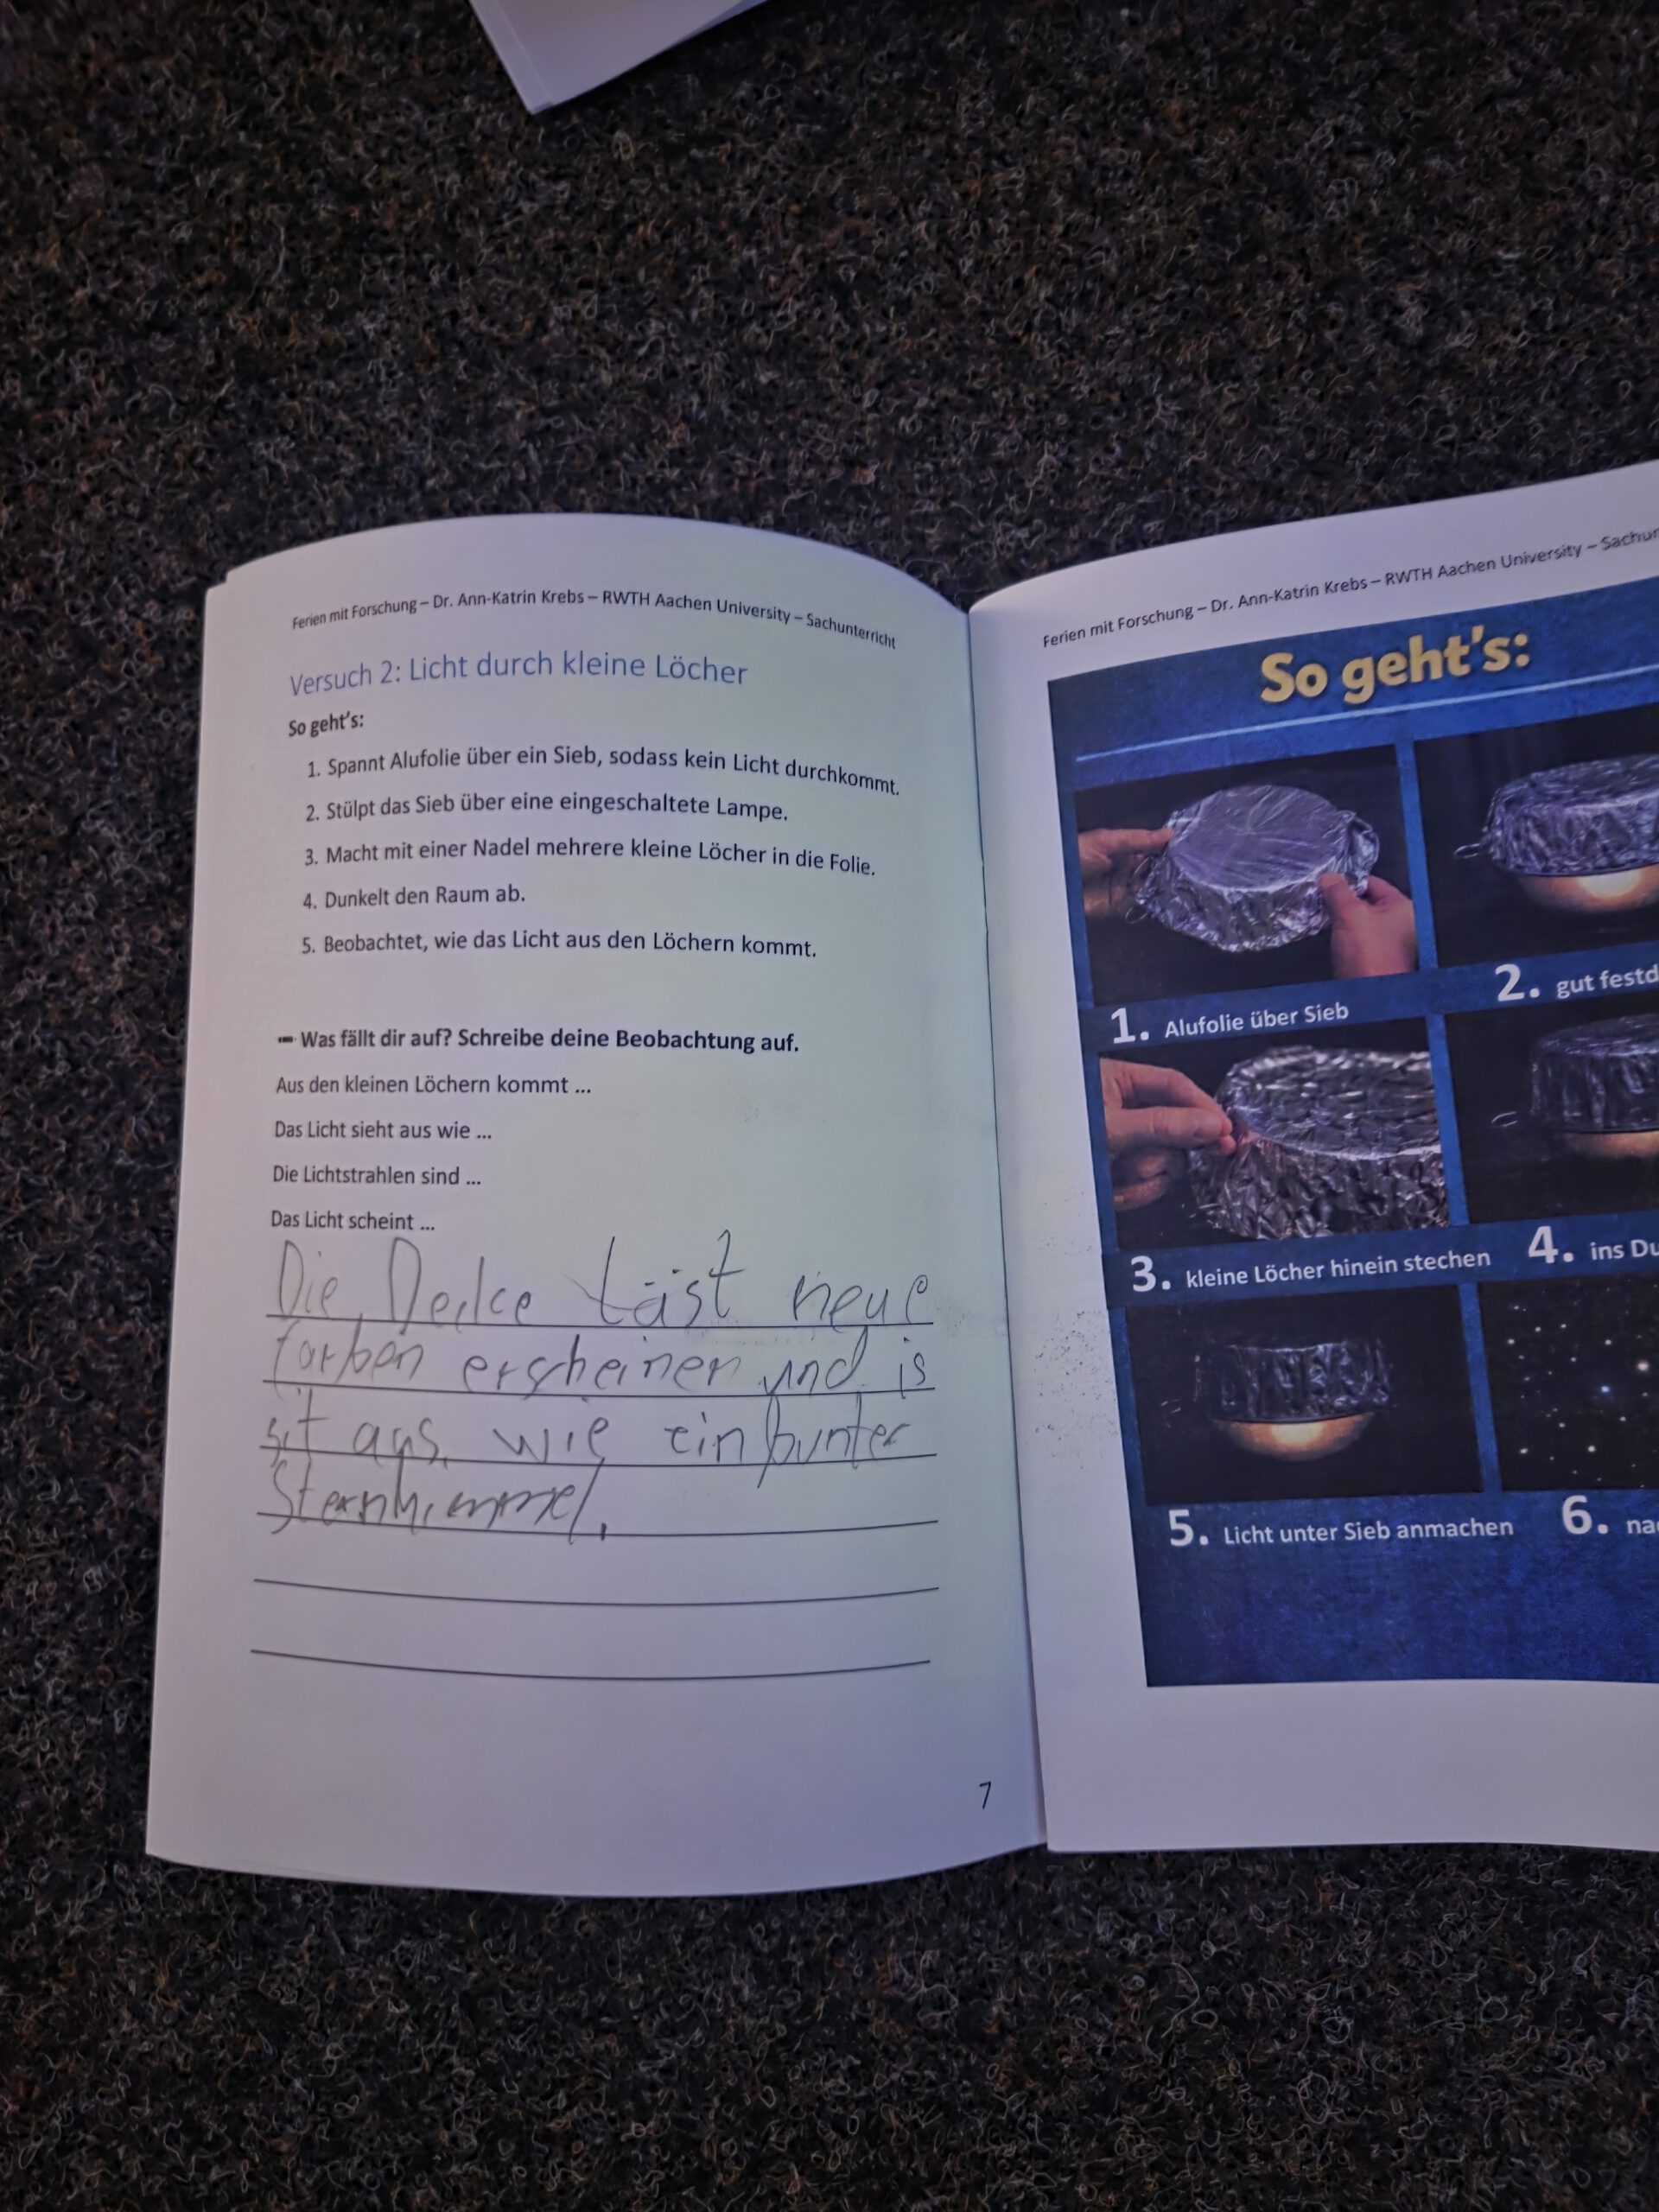 Ferien mit Forschung – Dr. Ann-Katrin Krebs – RWTH Aachen University – Sachunterricht
Versuch 2: Licht durch kleine Löcher
So geht's:
1. Spannt Alufolie über ein Sieb, sodass kein Licht durchkommt.
2. Stülpt das Sieb über eine eingeschaltete Lampe.
3. Macht mit einer Nadel mehrere kleine Löcher in die Folie.
4. Dunkelt den Raum ab.
5. Beobachtet, wie das Licht aus den Löchern kommt.
Was fällt dir auf? Schreibe deine Beobachtung auf.
Aus den kleinen Löchern kommt ...
Das Licht sieht aus wie ...
Die Lichtstrahlen sind ...
Das Licht scheint ...
Die Decke läst neue
farben erscheinen und
sit aus wie ein bunter
Sternhimmel.
7
Ferien mit Forschung – Dr. Ann-Katrin Krebs – RWTH Aachen University –
So geht's:
1. Alufolie über Sieb
2. gut
3. kleine Löcher hinein stechen
4. ins
5. Licht unter Sieb anmachen
6.